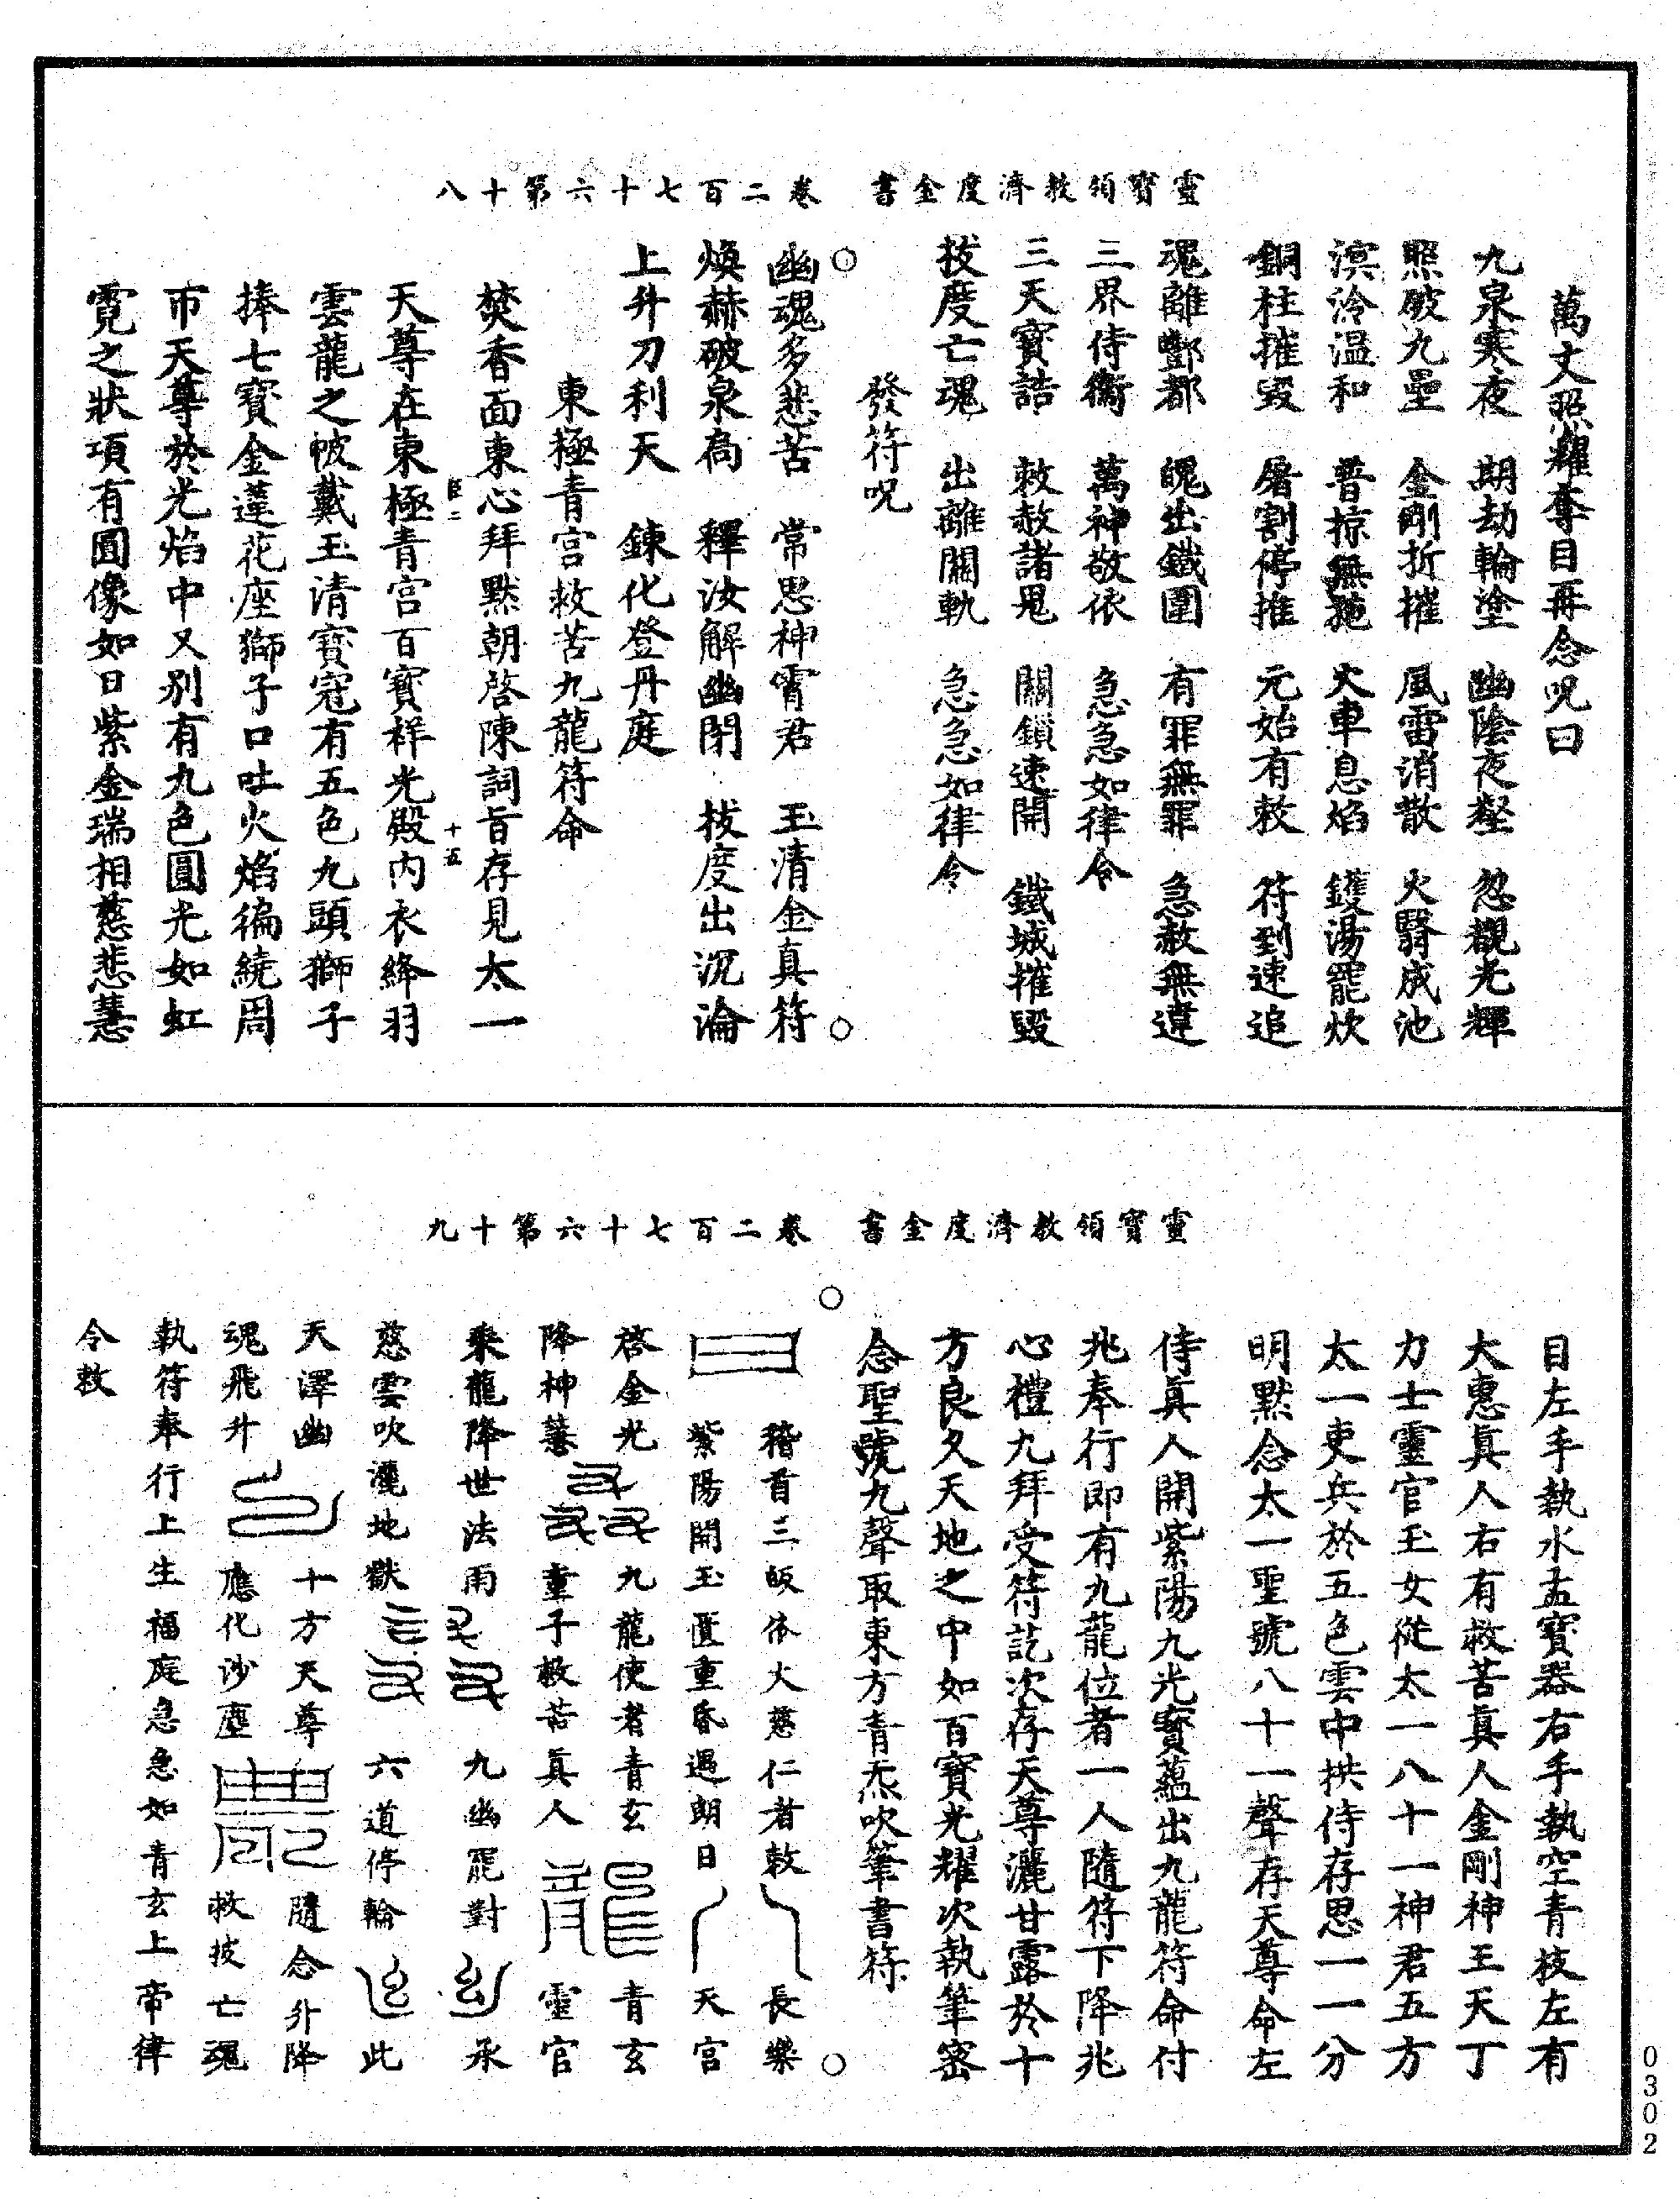 靈寶領教濟度金書　卷二百七十六第十八
萬丈照耀奪目再念呪曰
九泉寒夜　期劫輪塗　幽陰夜壑　忽覩光輝
照破九壘　金剛折摧　風雷消散　火翳成池
溟泠温和　普掠無拖　火車息焰　鑊湯罷炊
銅柱摧毀　屠割停推　元始有敕　符到速追
魂離酆都　魄出鐵圍　有罪無罪　急赦無違
三界侍衛　萬神敬依　急急如律令
三天寶誥　敕赦諸冤　關鎖速開　鐵城摧毀
拔度亡魂　出離關軌　急急如律令
發符呪
幽魂多悲苦　常思神霄君　玉清金真符
煥赫破泉扃　釋汝解幽閉　拔度出沉淪
上升刀利天　鍊化登丹庭
東極青宮救苦九龍符命
焚香面東心拜黙朝啓陳詞旨存見太一
天尊在東極青宮百寶祥光殿内衣絳羽
雲龍之帔戴玉清寶冠有五色九頭獅子
捧七寶金蓮花座獅子口吐火焰徧繞周
帀天尊於光焰中又别有九色圓光如虹
霓之狀項有圓像如日紫金瑞相慈悲慧
靈寶領教濟度金書　卷二百七十六第十九
目左手執水盂寶器右手執空青枝左有
大惠眞人右有救苦眞人金剛神王天丁
力士靈官玉女從太一八十一神君五方
太一吏兵於五色雲中拱侍存思一一分
明黙念太一聖號八十一聲存天尊命左
侍眞人開紫陽九光寳藴出九龍符命付
兆奉行即有九龍位者一人隨符下降兆
心禮九拜受符訖次存天尊灑甘露於十
方良久天地之中如百寳光耀次執筆密
念聖號九聲取東方青炁吹筆書符
稽首三皈依大慈仁者敕　長樂
紫陽開玉匱重昏遇朗日　天宮
啓金光　九龍使者青玄　青玄
降神慧　童子救苦眞人　靈官
乘龍降世法雨　九幽罷對　承
慈雲吹灑地獄　六道停輪　此
天澤幽　十方天尊　隨念升降
魂飛升　應化沙塵　救拔亡魂
執符奉行上生福庭急急如青玄上帝律
令敕
0302